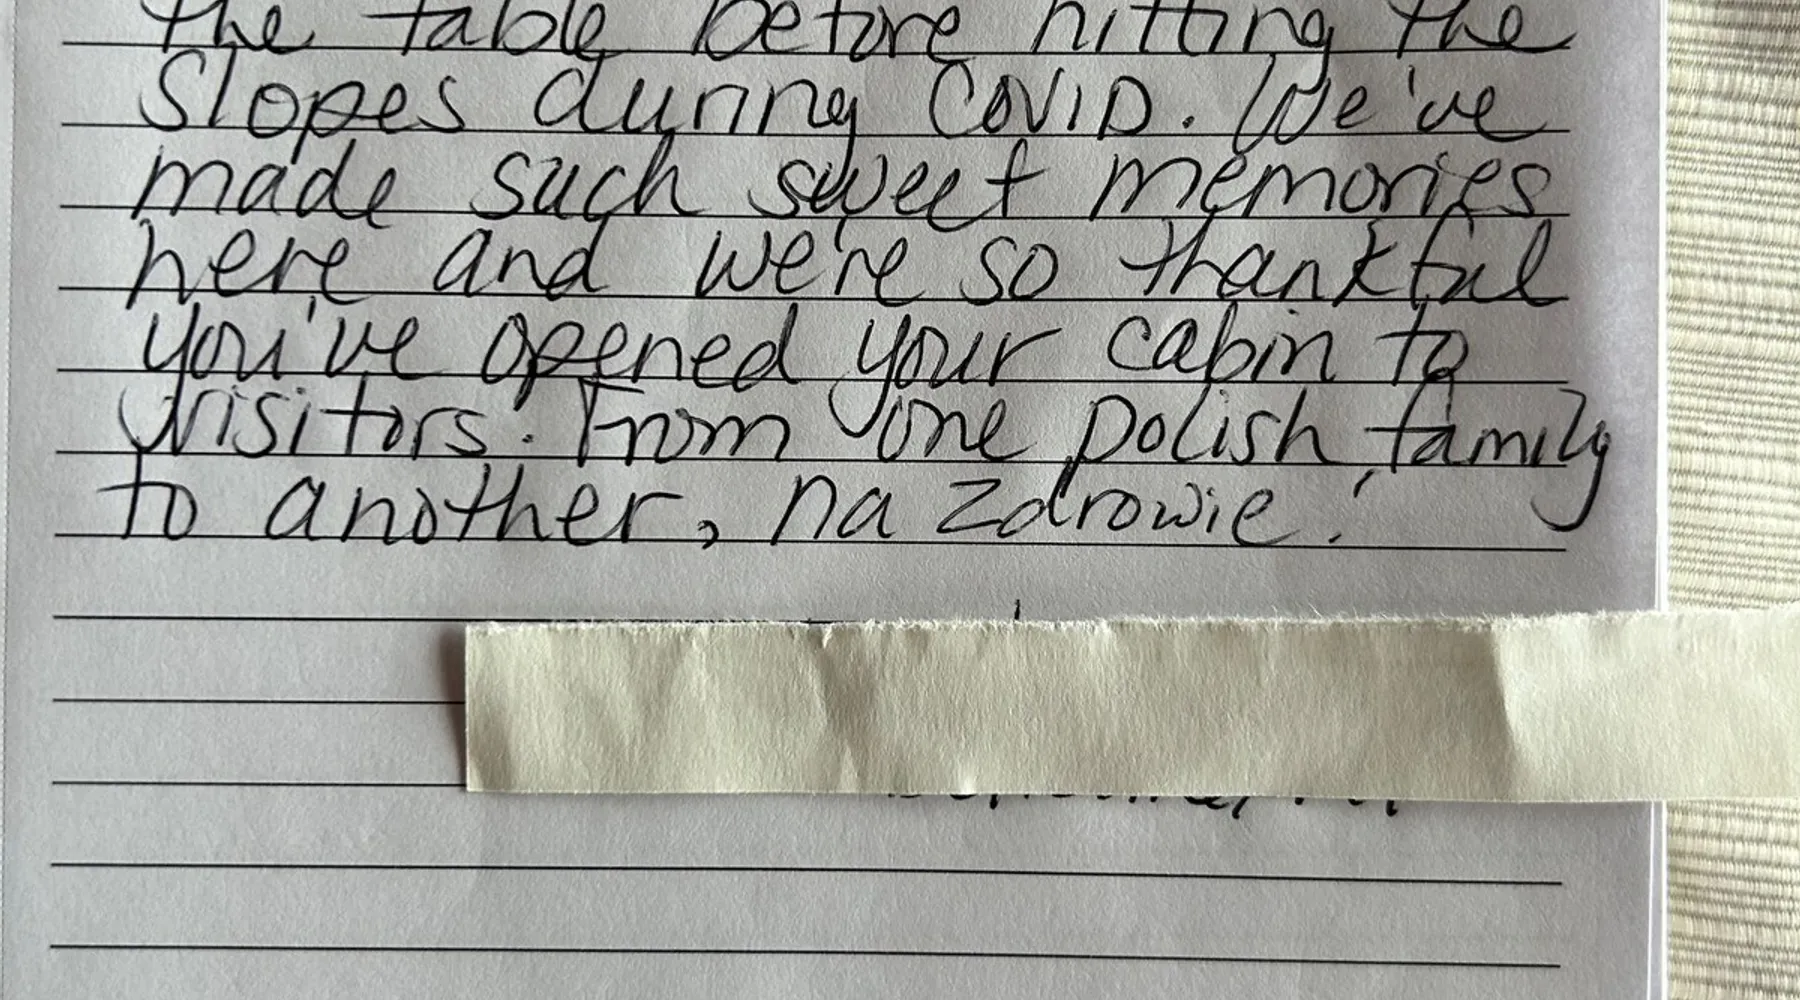 the table before hitting the
slopes during COVID. We've
made such sweet memories
here and we're so thankful
you've opened your cabin to
visitors. From one polish family
to another, na zdrowie!